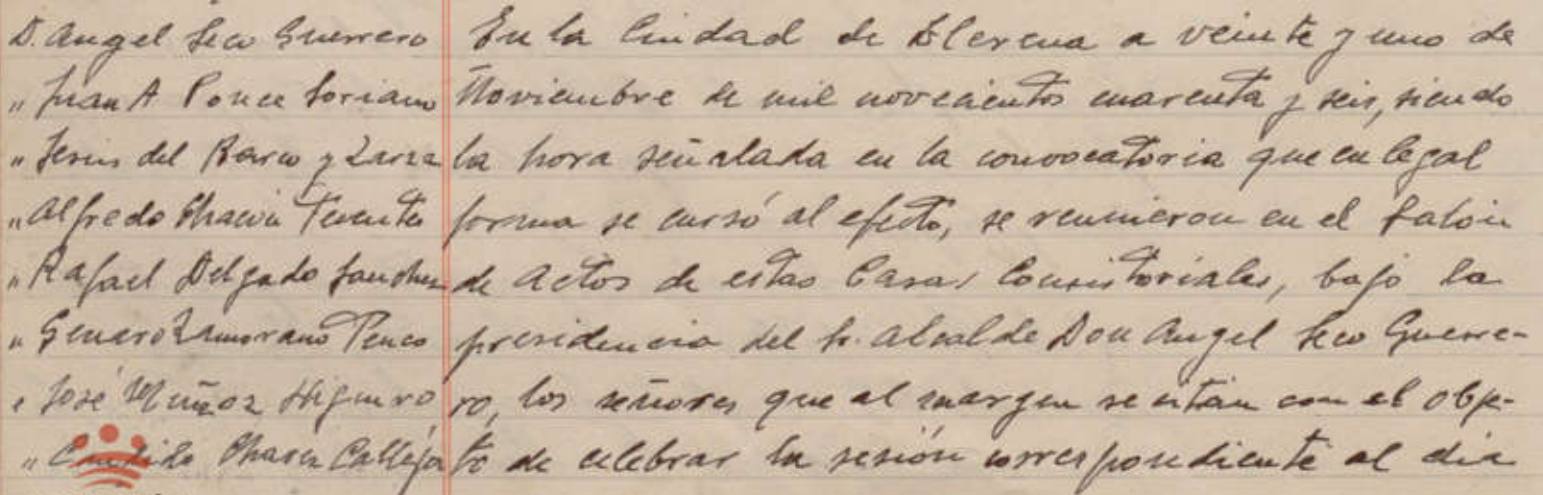 D. Angel Seco Guerrero
" Juan A Ponce Soriano
" Jesús del Barco y Zarza
" Alfredo Chacón Fuentes
" Rafael Delgado Sanchez
" Genaro Zamorano Penco
" José Muñoz Higuero
" Chaves Calleja
En la Ciudad de Llerena a veinte y uno de
Noviembre de mil novecientos cuarenta y seis, siendo
la hora señalada en la convocatoria que en legal
forma se cursó al efecto, se reunieron en el Salón
de Actos de estas Casas Consistoriales, bajo la
presidencia del Sr. Alcalde Don Angel Seco Guerre-
ro, los señores que al margen se citan con el obje-
to de celebrar la sesión correspondiente al dia